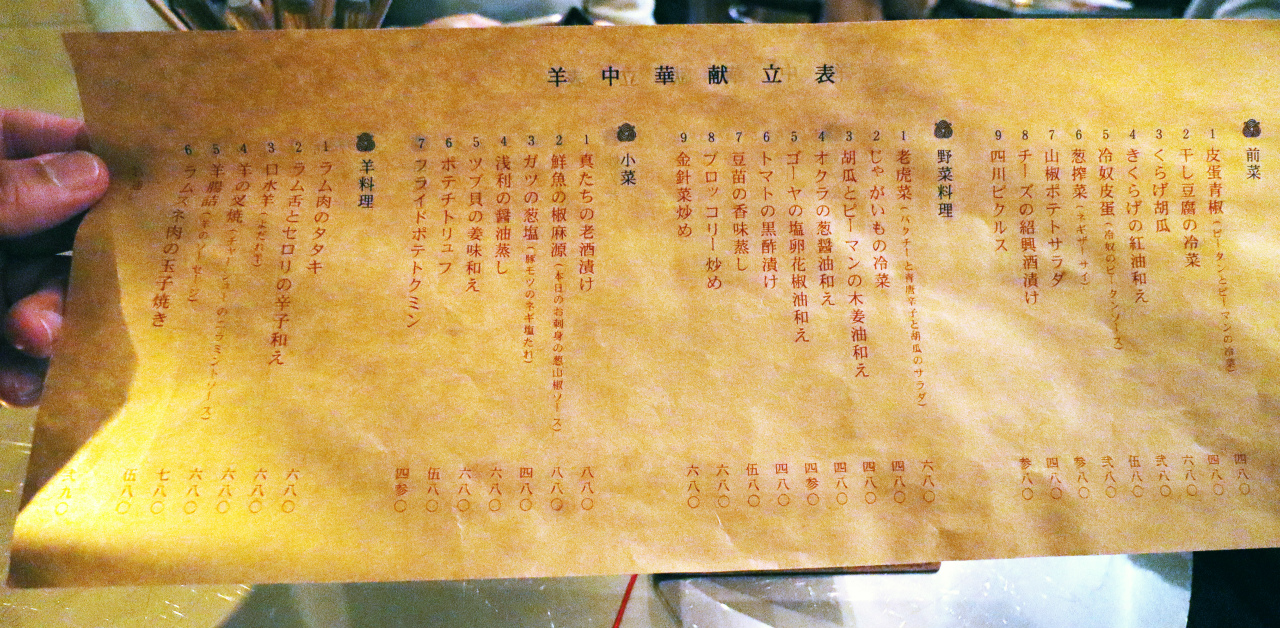 羊中華献立表
前菜
1 皮蛋青椒（ピータンとピーマンの冷菜） 四八〇
2 干し豆腐の冷菜 四八〇
3 くらげ胡瓜 六八〇
4 きくらげの紅油和え 弐八〇
5 冷奴皮蛋（冷奴のピータンソース） 伍八〇
6 葱搾菜（ネギザーサイ） 弐八〇
7 山椒ポテトサラダ 参八〇
8 チーズの紹興酒漬け 四八〇
9 四川ピクルス 参八〇
野菜料理
1 老虎菜（パクチーと青唐辛子と胡瓜のサラダ） 六八〇
2 じゃがいもの冷菜 四八〇
3 胡瓜とピーマンの木姜油和え 四八〇
4 オクラの葱醤油和え 四八〇
5 ゴーヤの塩卵花椒油和え 四参〇
6 トマトの黒酢漬け 四八〇
7 豆苗の香味蒸し 伍八〇
8 ブロッコリー炒め 六八〇
9 金針菜炒め 六八〇
小菜
1 真たちの老酒漬け 八八〇
2 鮮魚の椒麻源（本日のお刺身の葱山椒ソース） 八八〇
3 ガツの葱塩（豚モツのネギ塩たれ） 四八〇
4 浅利の醤油蒸し 六八〇
5 ツブ貝の姜味和え 六八〇
6 ポテチトリュフ 伍八〇
7 フライドポテトクミン 四参〇
羊料理
1 ラム肉のタタキ 六八〇
2 ラム舌とセロリの辛子和え 六八〇
3 口水羊（よだれ羊） 六八〇
4 羊の叉焼（チャーシューのニラミントソース） 六八〇
5 羊腸詰（羊のソーセージ） 七八〇
6 ラムスネ肉の玉子焼き 伍八〇
弐八〇